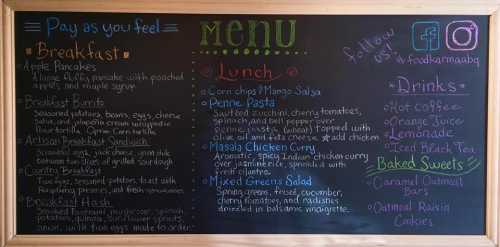 Pay as you feel
Breakfast
Apple Pancakes
A large fluffy pancake with poached
apples and maple syrup.
Breakfast Burrito
Seasoned potatoes, beans, eggs, cheese
salsa, and cream wrapped in
flour tortilla. Corn tortilla
Artisan Breakfast Sandwich
eggs,
between two slices of grilled sourdough
Country Breakfast
Two eggs, seasoned potatoes, toast with
preserves, and fresh
Breakfast Hash
mushroom, spinach,
potatoes, quinoa, sunflower sprouts,
onion, with two eggs made to order
MENU
Lunch
Corn chips & Mango Salsa
Penne Pasta
Sautéed zucchini, cherry tomatoes,
spinach, and bell pepper over
penne pasta (wheat) topped with
olive oil and feta cheese add chicken
Masala Chicken Curry
Aromatic, spicy Indian chicken curry
over jasmine rice, sprinkled with
fresh cilantro.
Mixed Greens Salad
Spring greens, cucumber,
cherry tomatoes, and radishes
drizzled in balsamic vinaigrette.
follow
us!
foodkarmaabq
Drinks
Hot Coffee
Orange Juice
Lemonade
Iced Black Tea
Baked Sweets
Caramel Oatmeal
Bars
Oatmeal Raisin
Cookies